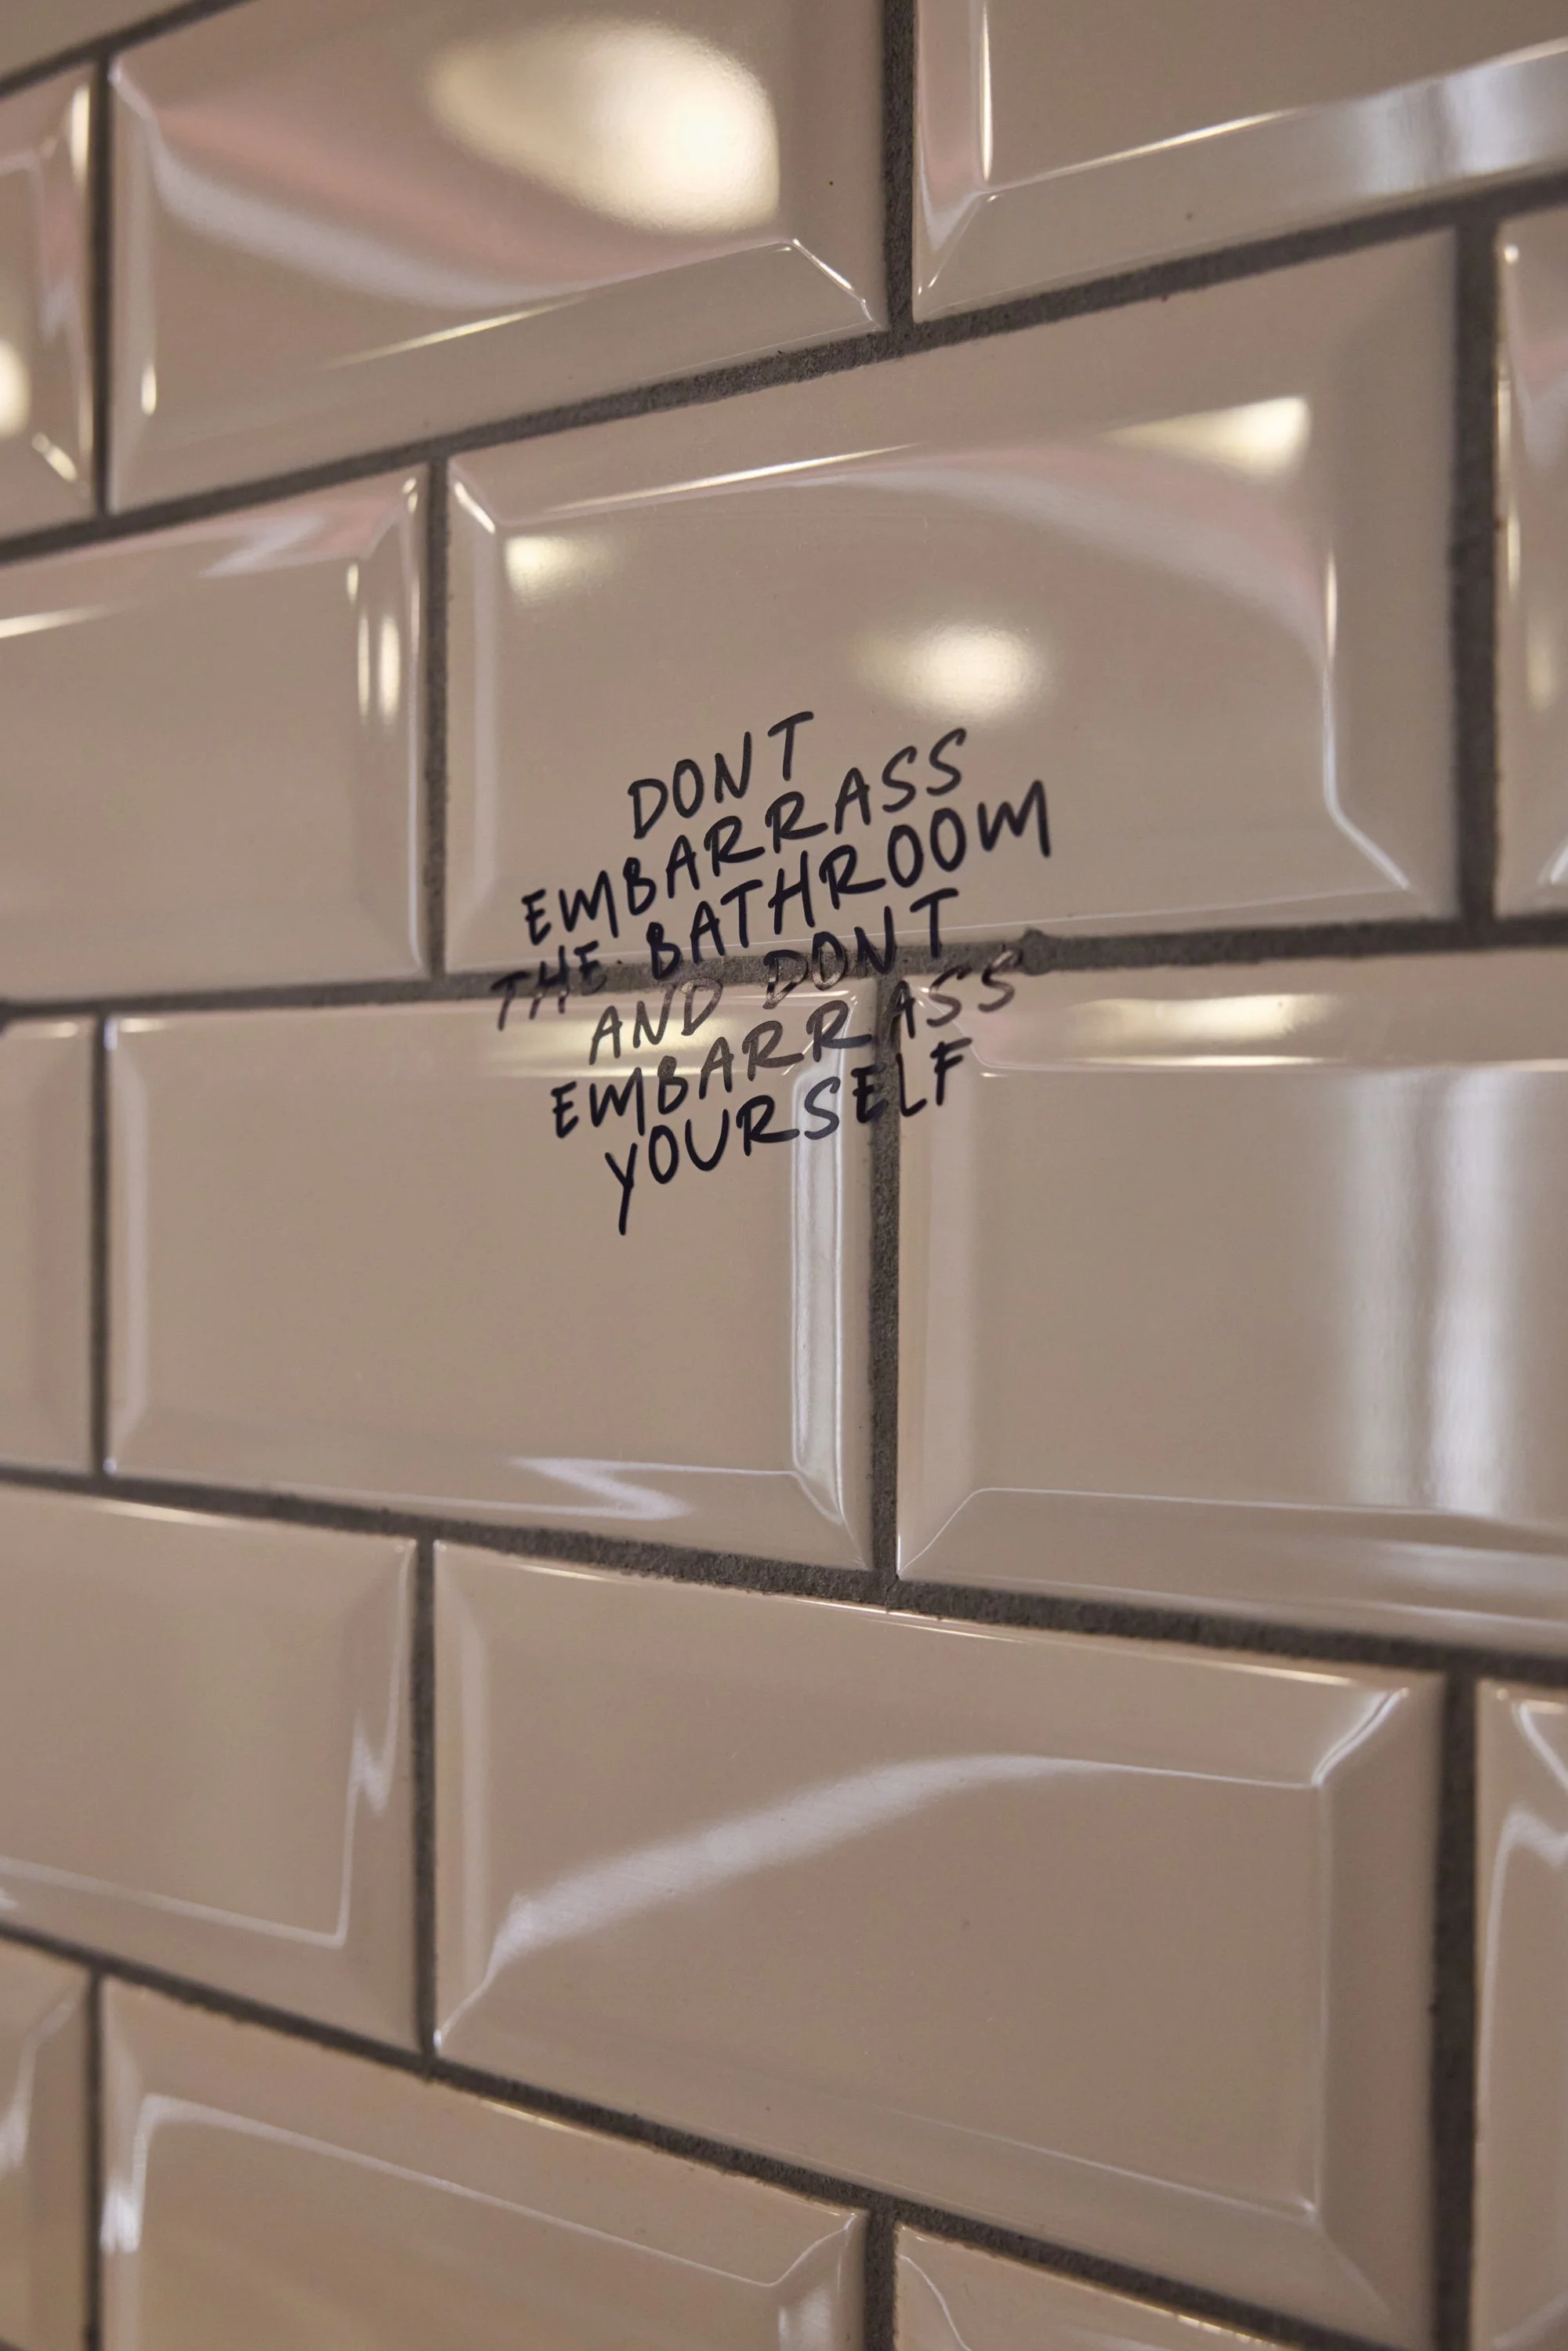 DONT
EMBARRASS
THE BATHROOM
AND DONT
EMBARRASS
YOURSELF